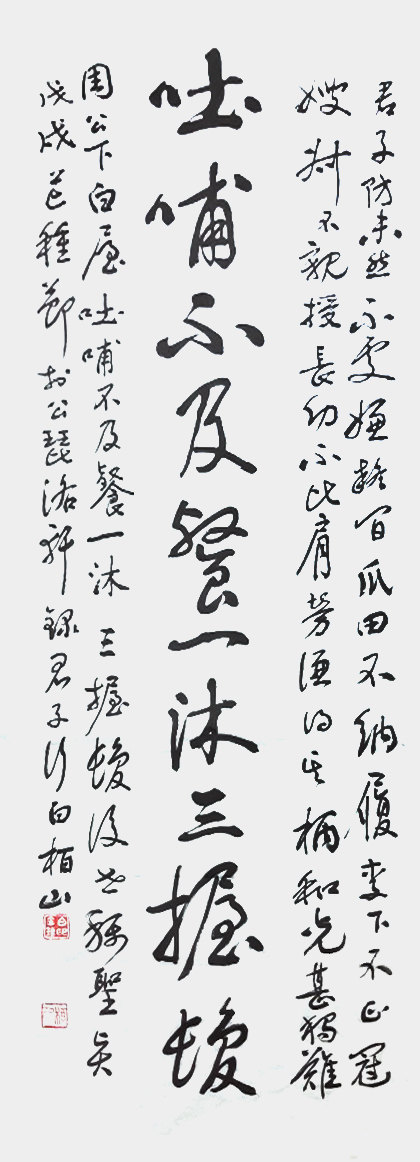 君子防未然不處嫌疑間瓜田不納履李下不正冠
嫂叔不親授長幼不比肩勞謙得其柄和光甚獨難
吐哺不及餐一沐三握髮
周公下白屋吐哺不及餐一沐三握髮後世稱聖賢
戊戌芒種節於公琵洛軒錄君子行白柏山